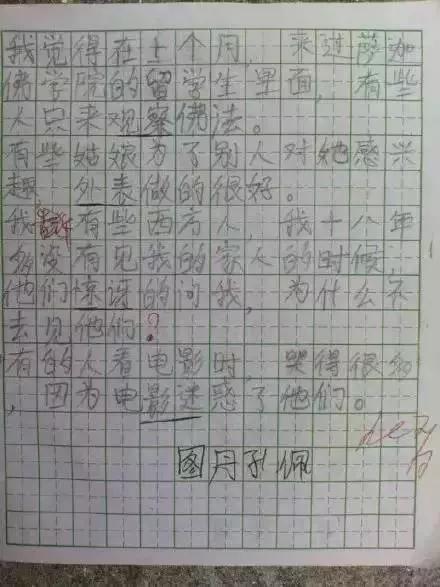 我觉得在十个月,来过萨加
佛学院的留学生里面,有些
人只来观察佛法。
有些姑娘为了别人对她感兴
趣,外表做的很好。
我有些西方人,我十八年
多没有见我的家人的时候,
他们惊讶的问我,为什么不
去见他们?
有的人看电影时,哭得很多
,因为电影迷惑了他们。
图丹孔佩